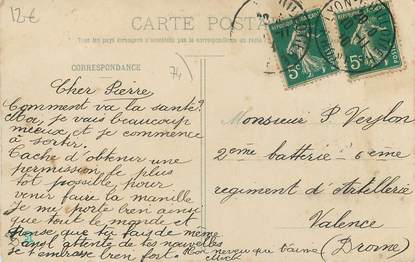 12€
CARTE POSTALE
Tout les pays étrangers n'acceptent pas la correspondance au recto
CORRESPONDANCE
74
Cher Pierre
Comment va la santé?
Moi, je vais beaucoup
mieux et je commence
à sortir.
Tache d'obtenir une
permission le plus
tôt possible, pour
venir faire la manille
Je me porte bien ainsi
que tout le monde et
pense que tu fais de même
Dans l'attente de tes nouvelles
je t'embrasse bien fort.
Ton neveu qui t'aime
REPUBLIQUE FRANÇAISE
5c
5c
Monsieur P Veylon
2ème batterie 6ème
regiment d'Artillerie
Valence
(Drome)